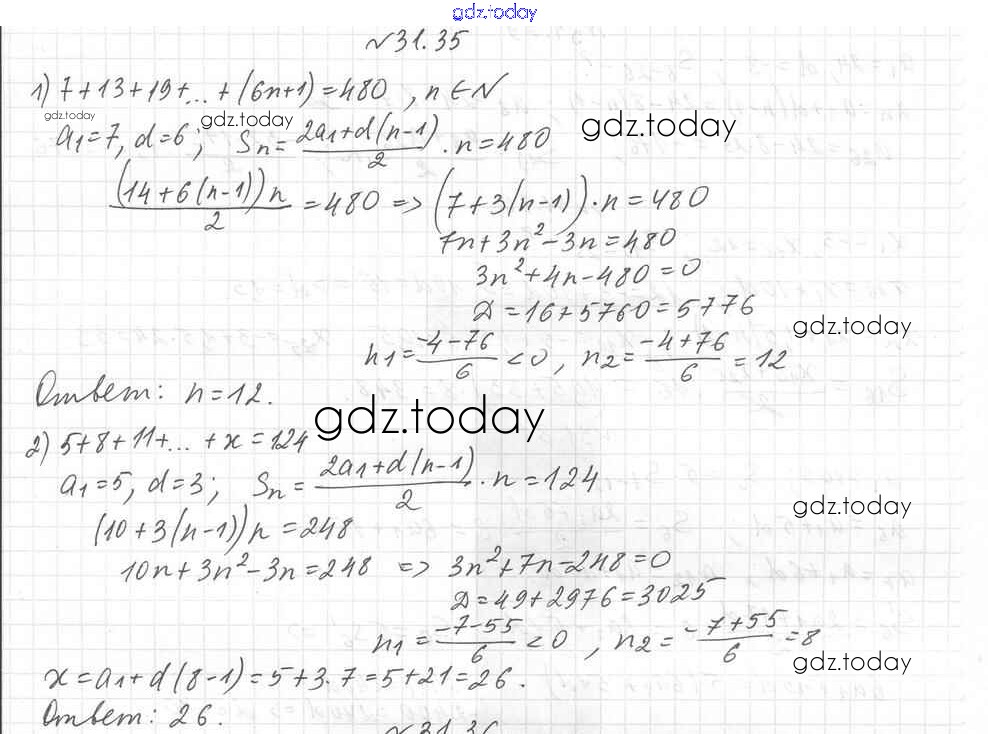 gdz.today
№31.35
1) 7+13+19+...+(6n+1)=480 , n∈N
gdz.today
gdz.today
gdz.today
a₁=7, d=6; Sₙ= (2a₁+d(n-1))/2 · n=480
((14+6(n-1))n)/2 = 480 => (7+3(n-1))·n=480
7n+3n²-3n=480
3n²+4n-480=0
D=16+5760=5776
gdz.today
n₁= (-4-76)/6 <0 , n₂= (-4+76)/6 = 12
Ответ: n=12.
gdz.today
2) 5+8+11+...+x=124
a₁=5, d=3; Sₙ= (2a₁+d(n-1))/2 · n=124
gdz.today
(10+3(n-1))n=248
10n+3n²-3n=248 => 3n²+7n-248=0
D=49+2976=3025
n₁= (-7-55)/6 <0 , n₂= (-7+55)/6 =8
gdz.today
x=a₁+d(8-1)=5+3·7=5+21=26.
Ответ: 26.
№31.36